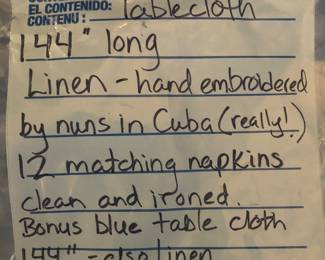 EL CONTENIDO: Tablecloth
CONTENU :
144" long
Linen - hand embroidered
by nuns in Cuba (really!)
12 matching napkins
clean and ironed.
Bonus blue table cloth
144" - also linen